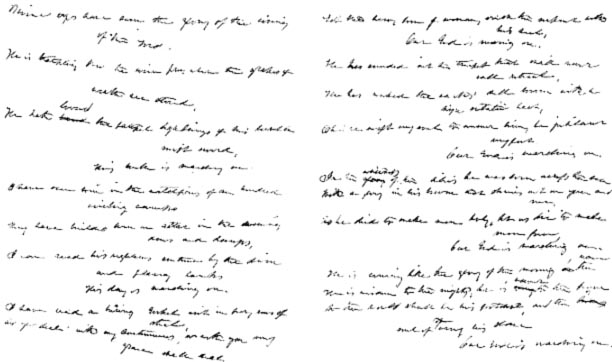 Mine eyes have seen the glory of the coming
of the Lord.
He is trampling out the wine press, where the grapes of
wrath are stored,
He hath loosed the fateful lightnings of his terrible
swift sword,
His truth is marching on.
I have seen him in the watchfires of an hundred
circling camps
They have builded him an altar in the evening
dews and damps,
I can read his righteous sentence by the dim
and flaring lamps
His day is marching on.
I have read a burning Gospel writ in fiery rows of
steel,
As ye deal with my contemners, so with you my
grace shall deal.
Let the hero, born of woman, crush the serpent with
his heel,
Our God is marching on.
He has sounded out the trumpet that shall never
call retreat,
He has waked the earth's dull sorrow with a
high ecstatic beat,
Oh! be swift my soul to answer him, be jubilant
my feet
Our God is marching on.
In the whiteness of the lilies he was born across the sea
With a glory in his bosom that shines out on you and
me,
As he died to make men holy, let us die to make
men free,
Our God is marching on.
He is coming like the glory of the morning on the wave
He is wisdom to the mighty, he is to the brave
So the world shall be his footstool, and the
soul of Time his slave
Our God is marching on.